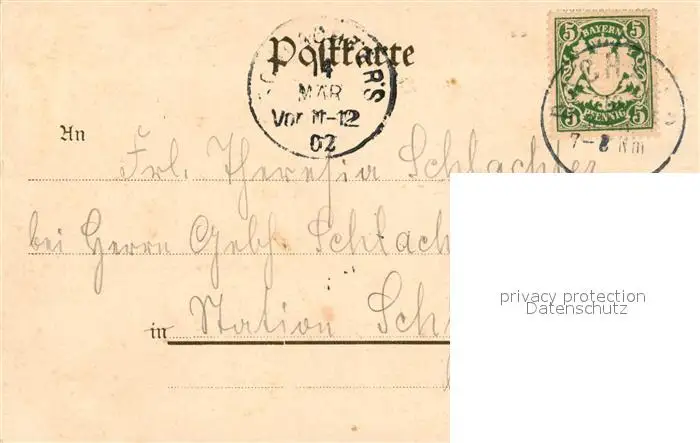 Postkarte
14
MAR
Vor 11-12
02
5 BAYERN 5
5 PFENNIG 5
7-8 Nm
An
Frl. Theresia Schlachter
bei Herrn Gebh. Schlach
in Station Sch
privacy protection
Datenschutz